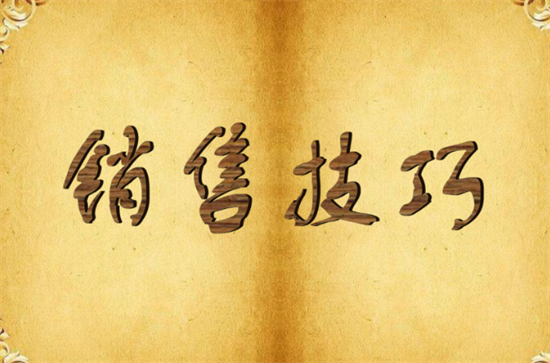 销售技巧